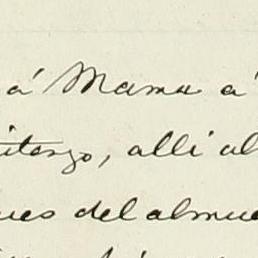 á Mama á
itazgo, alli al
ues del almue